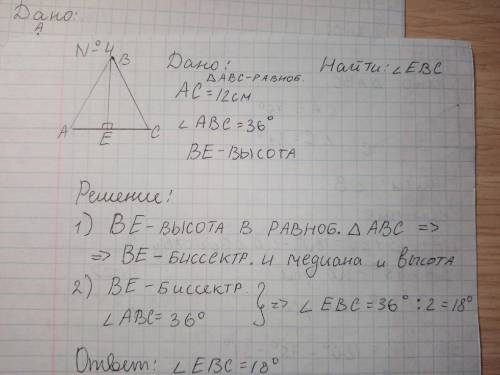 Дано:
A
N°4
B
A
E
C
Дано:
Найти: ∠EBC
△ABC-РАВНОБ.
AC=12см
∠ABC=36°
BE-ВЫСОТА
Решение:
1) BE-ВЫСОТА В РАВНОБ. △ABC =>
=> BE-БИССЕКТР. И МЕДИАНА И ВЫСОТА
2) BE-БИССЕКТР.
∠ABC=36° } => ∠EBC=36°:2=18°
Ответ: ∠EBC=18°